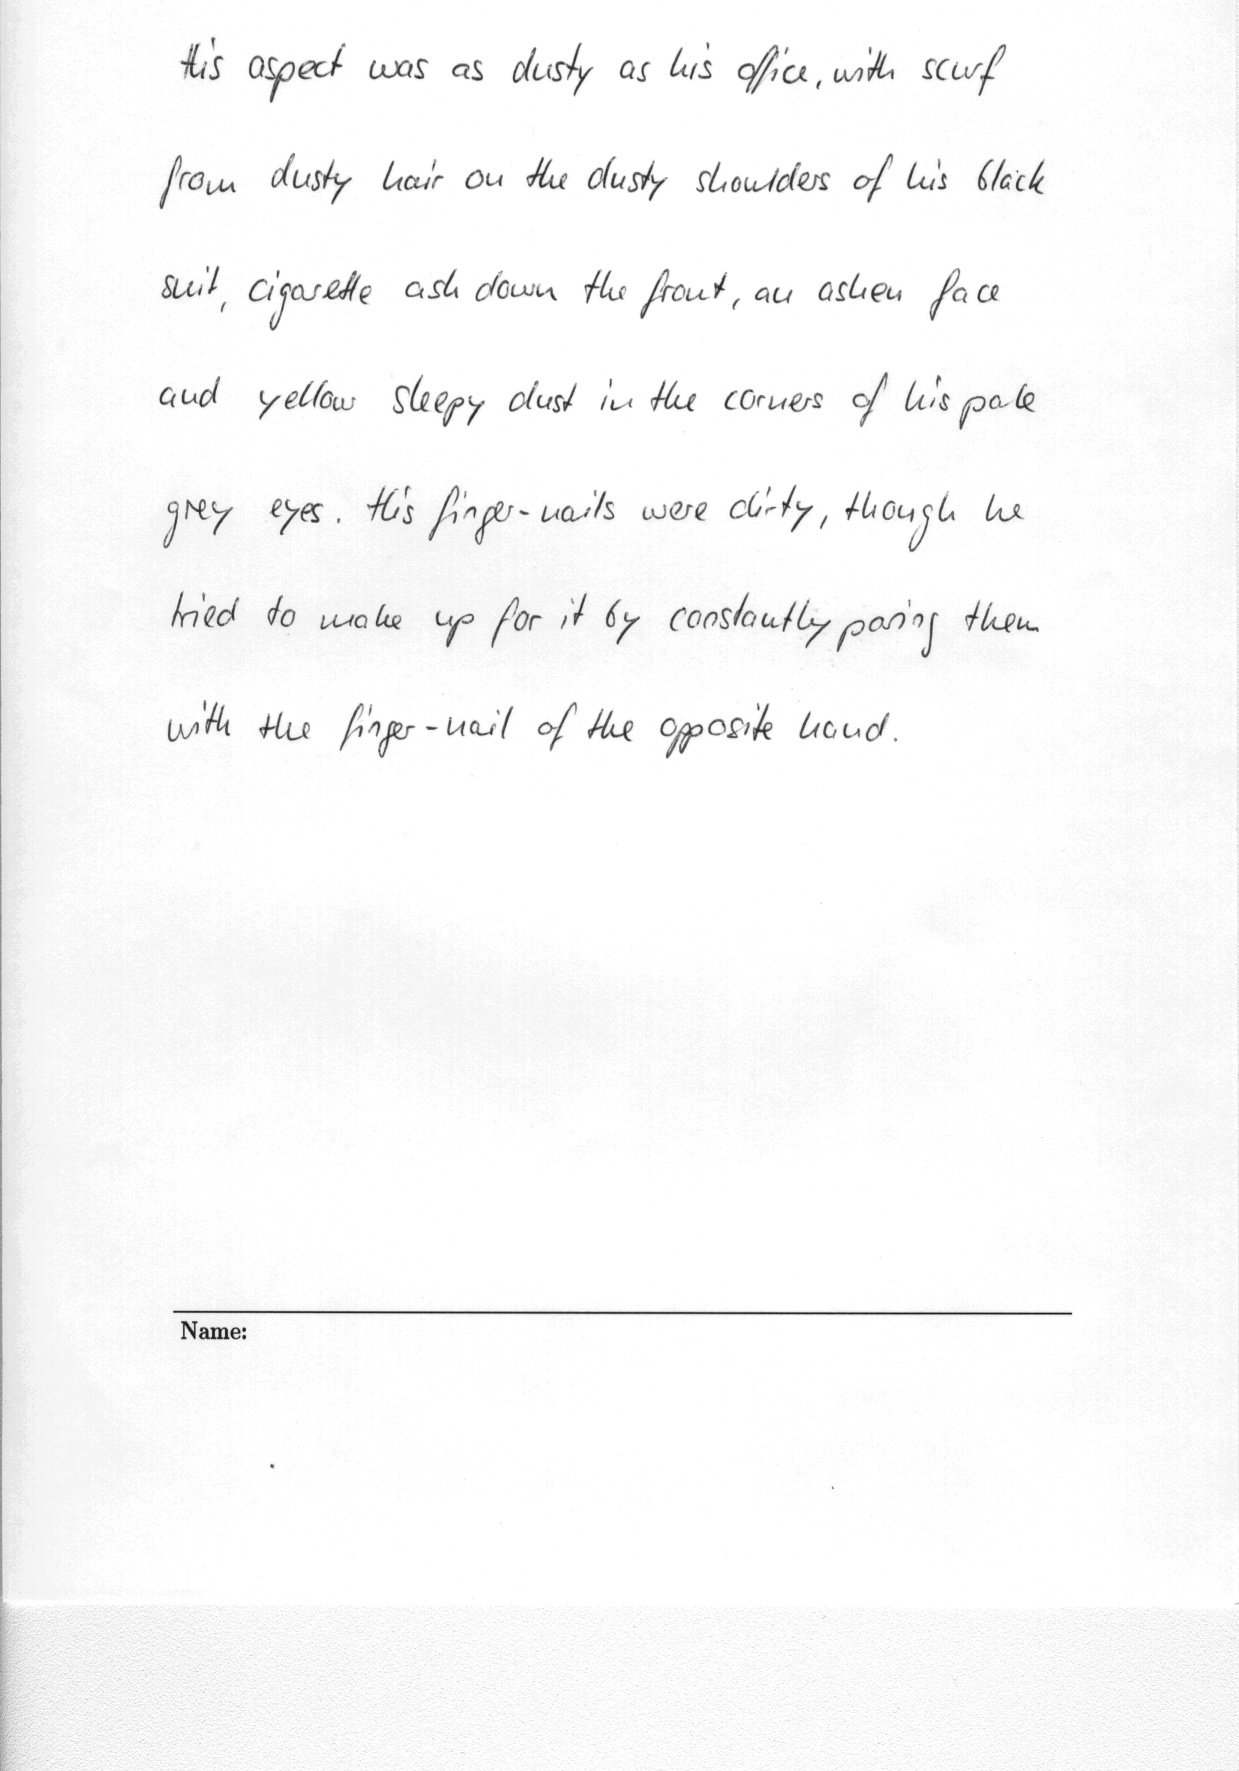 His aspect was as dusty as his office, with scurf
from dusty hair on the dusty shoulders of his black
suit, cigarette ash down the front, an ashen face
and yellow sleepy dust in the corners of his pale
grey eyes. His finger-nails were dirty, though he
tried to make up for it by constantly paring them
with the finger-nail of the opposite hand.
Name: